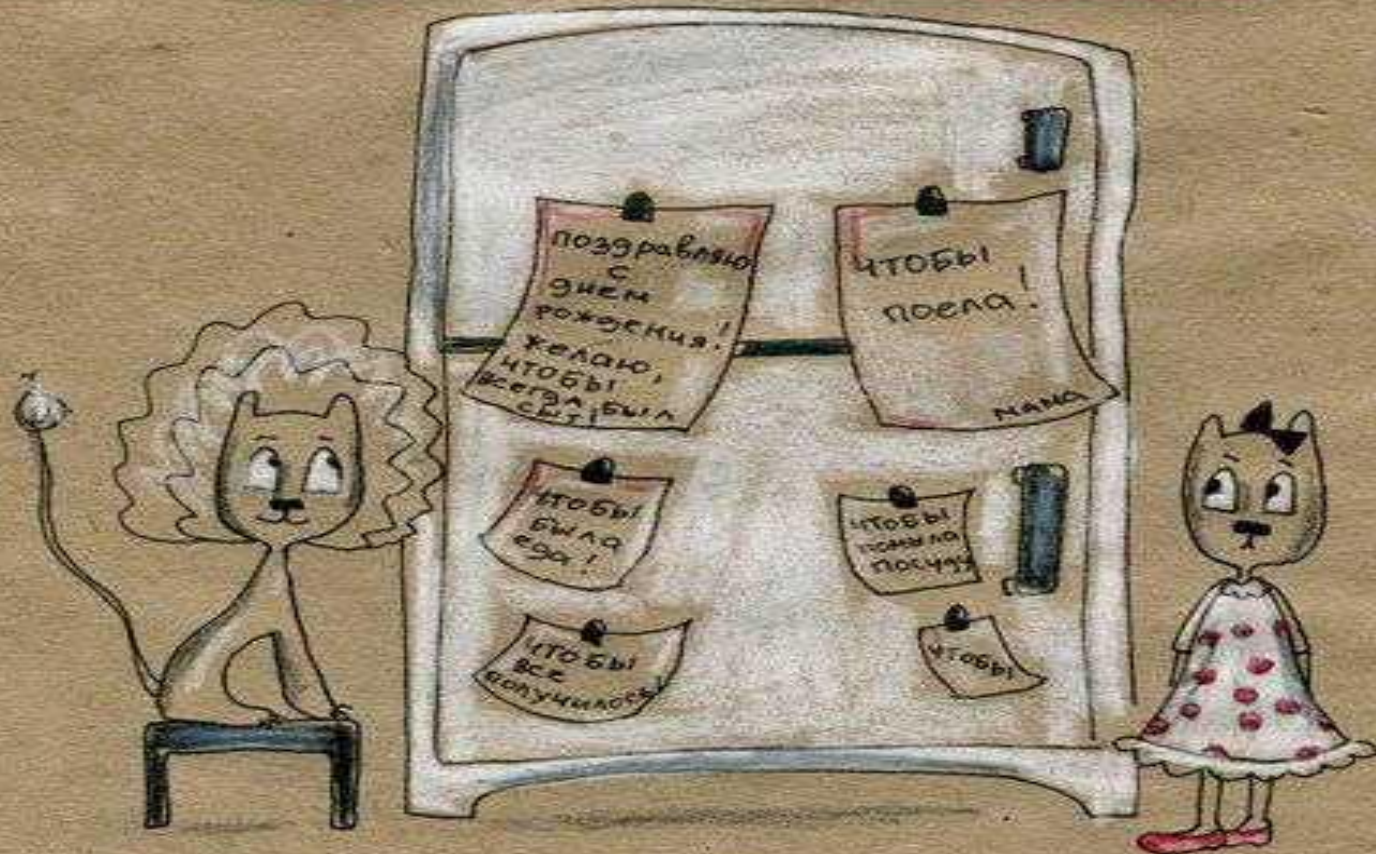 поздравляю
с
днём
рождения!
желаю,
чтобы
всегда был
сыт!
чтобы
поела!
мама
чтобы
была
еда!
чтобы
помыла
посуду
чтобы
все
получилось!
чтобы